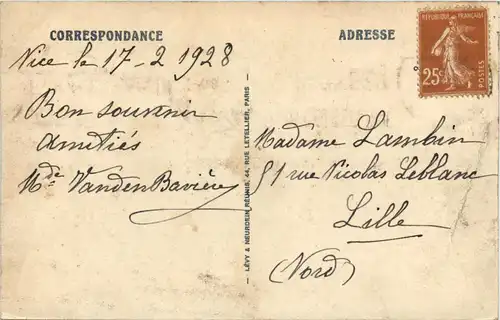 CORRESPONDANCE
Nice le 17-2 1928
Bon souvenir
amitiés
Mde VandenBavière
LÉVY & NEURDEIN RÉUNIS, 44, RUE LETELLIER, PARIS
ADRESSE
RÉPUBLIQUE FRANÇAISE
25c
POSTES
Madame Lambin
51 rue Nicolas Leblanc
Lille
(Nord)